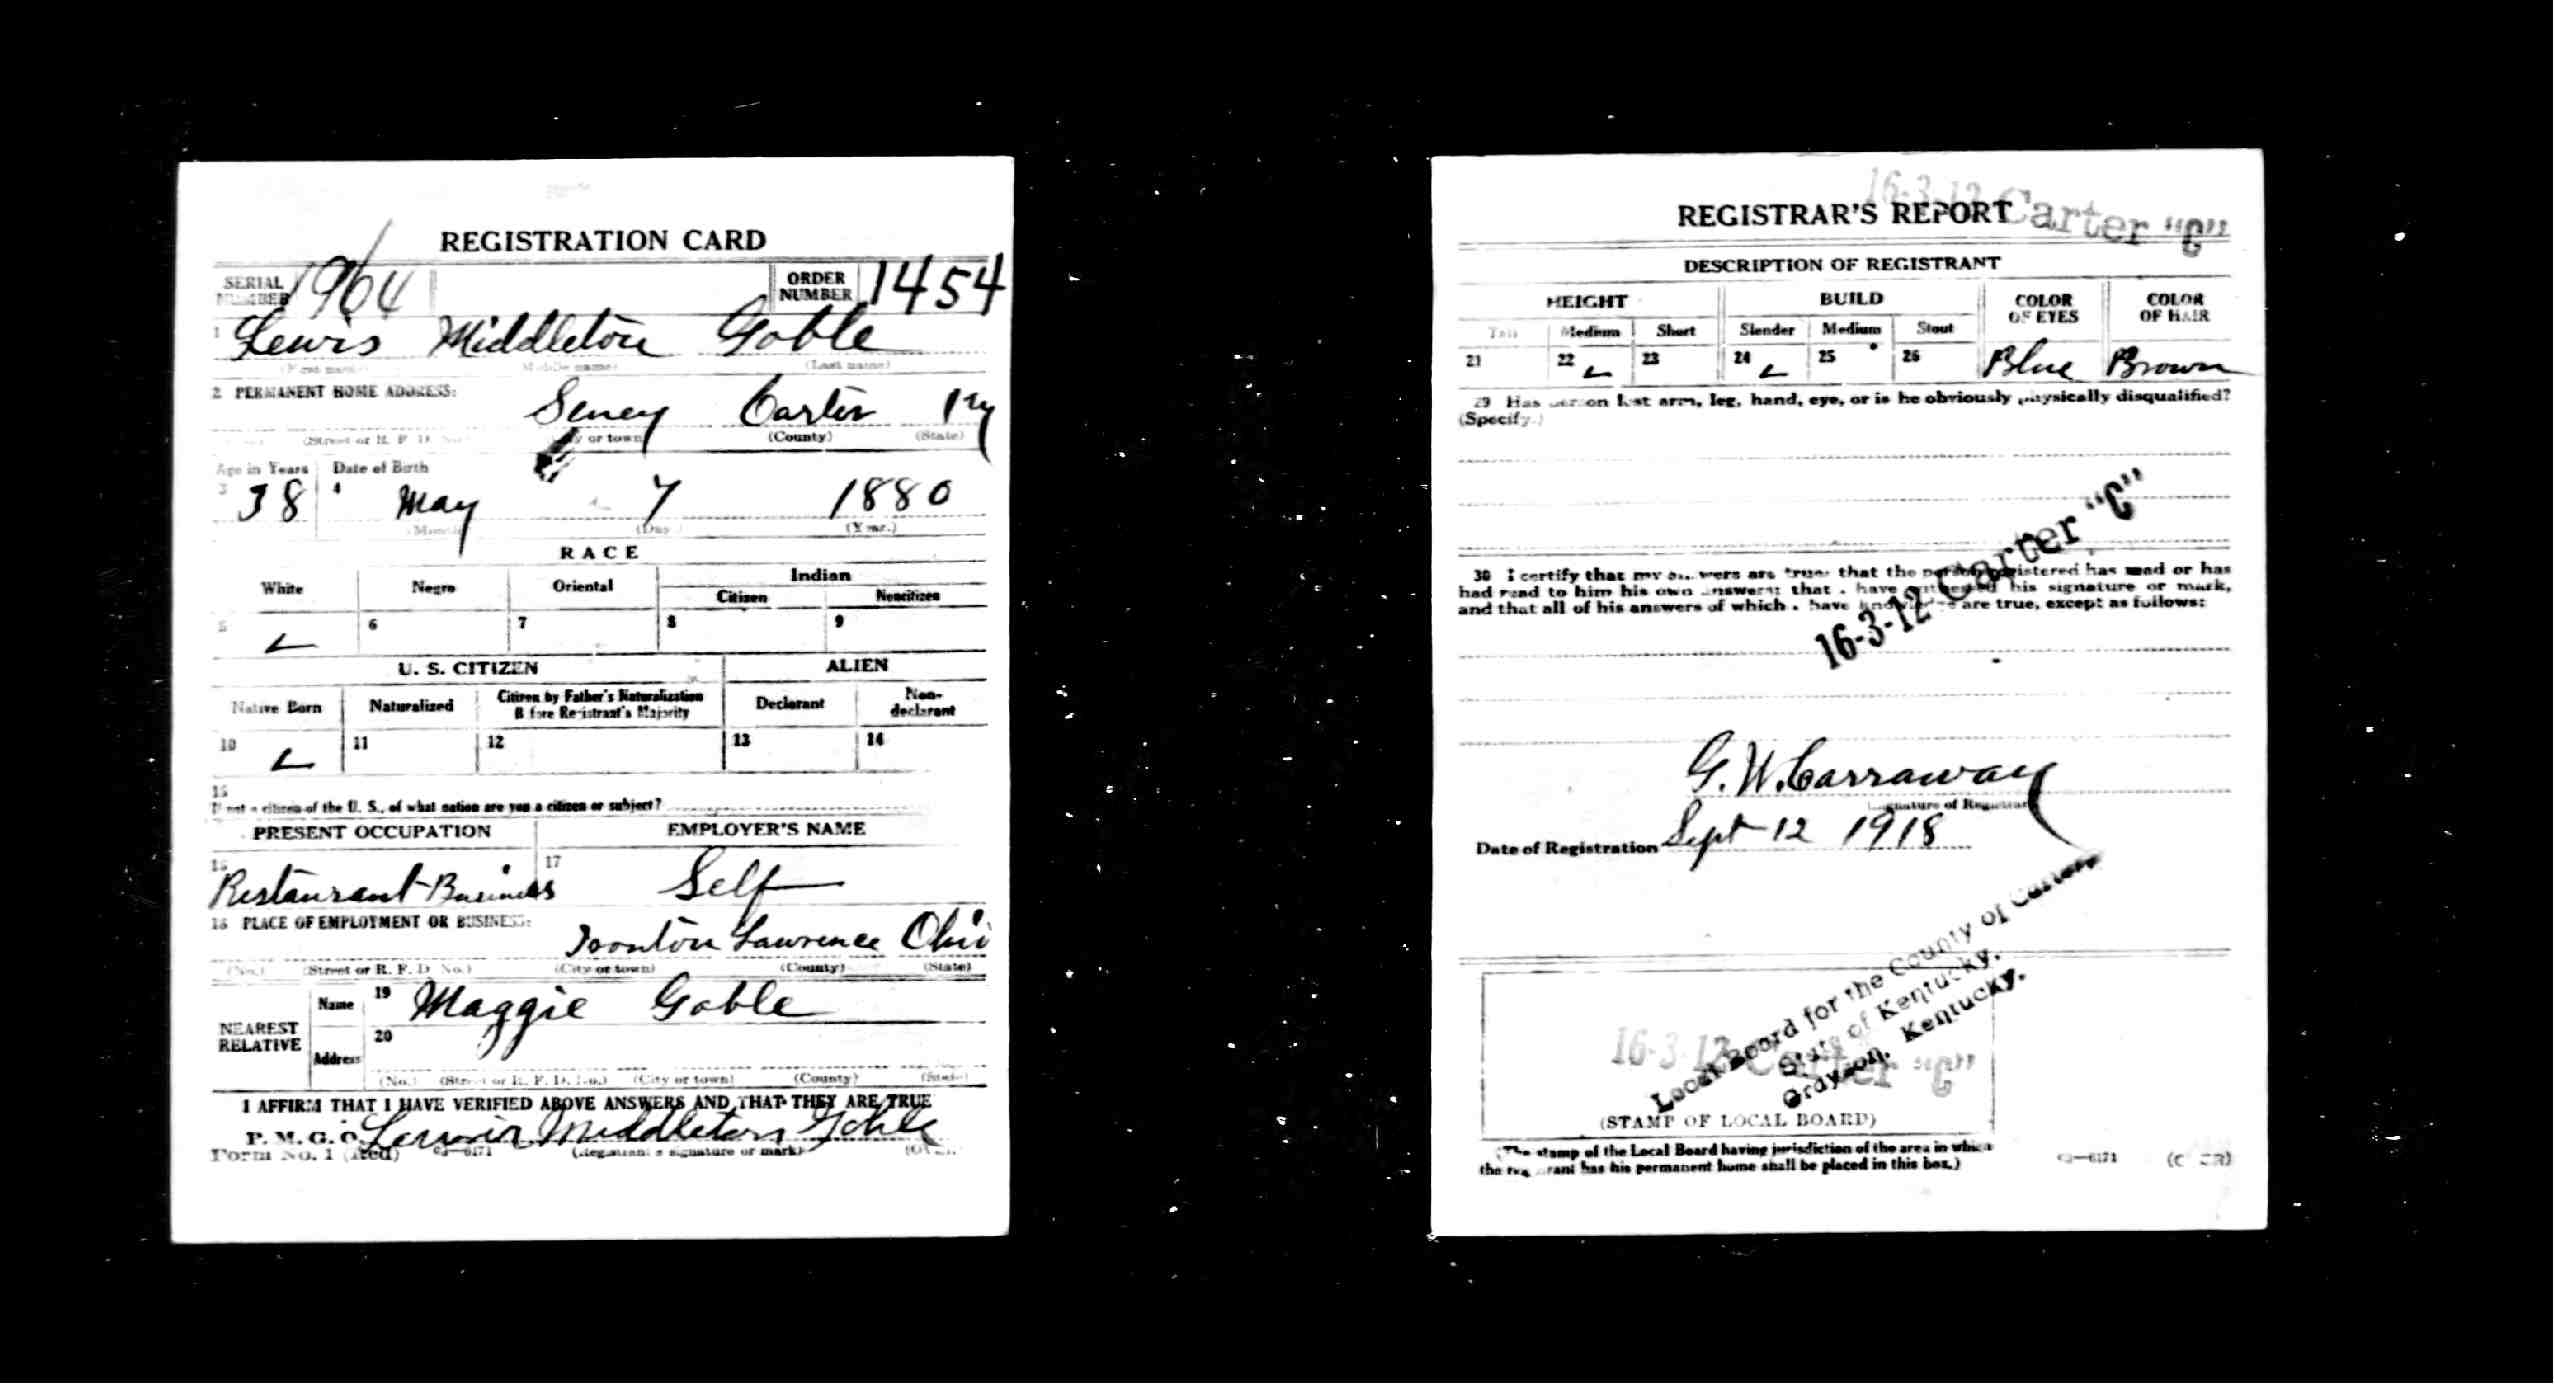 REGISTRATION CARD
SERIAL NUMBER 1964 ORDER NUMBER 1454
1 Lewis Middleton Goble
(First name) (Middle name) (Last name)
2 PERMANENT HOME ADDRESS:
Seney Carter Ky
(Street or R. F. D. No.) (City or town) (County) (State)
Age in Years Date of Birth
3 38 4 May 7 1880
(Month) (Day) (Year.)
RACE
White Negro Oriental Indian
Citizen Noncitizen
5 6 7 8 9
U. S. CITIZEN ALIEN
Native Born Naturalized Citizen by Father's Naturalization Before Registrant's Majority Declarant Non-declarant
10 11 12 13 14
15
If not a citizen of the U. S., of what nation are you a citizen or subject?
PRESENT OCCUPATION EMPLOYER'S NAME
16 Restaurant Business 17 Self
18 PLACE OF EMPLOYMENT OR BUSINESS:
Ironton Lawrence Ohio
(No.) (Street or R. F. D. No.) (City or town) (County) (State)
NEAREST RELATIVE
Name 19 Maggie Goble
Address 20
(No.) (Street or R. F. D. No.) (City or town) (County) (State)
I AFFIRM THAT I HAVE VERIFIED ABOVE ANSWERS AND THAT THEY ARE TRUE
P. M. G. O. Middleton Goble
Form No. 1 (Red) 03—6171 (Registrant's signature or mark)
16-3-12 Carter "C"
REGISTRAR'S REPORT
DESCRIPTION OF REGISTRANT
HEIGHT BUILD COLOR OF EYES COLOR OF HAIR
Tall Medium Short Slender Medium Stout
21 22 23 24 25 26 Blue Brown
29 Has person lost arm, leg, hand, eye, or is he obviously physically disqualified?
(Specify.)
30 I certify that my answers are true; that the person registered has read or has
had read to him his own answers; that I have witnessed his signature or mark,
and that all of his answers of which I have knowledge are true, except as follows:
16-3-12 Carter "C"
G. W. Carraway
(Signature of Registrar)
Date of Registration Sept 12 1918
Local Board for the County of Carter,
State of Kentucky,
Grayson, Kentucky.
16-3-12 Carter "C"
(STAMP OF LOCAL BOARD)
(The stamp of the Local Board having jurisdiction of the area in which
the registrant has his permanent home shall be placed in this box.)
03—6171 (OVER)